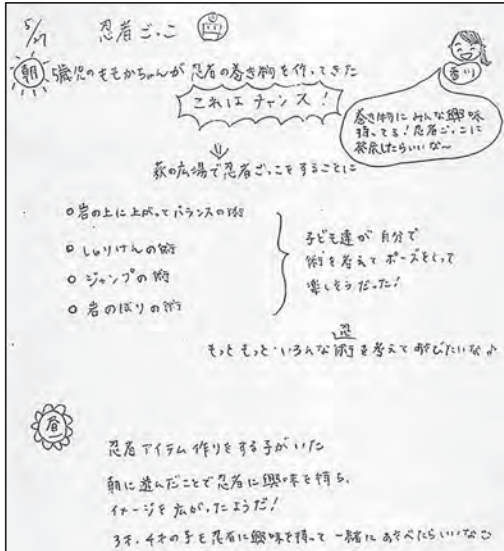 5/27 忍者ごっこ
朝 5歳児のももかちゃんが忍者の巻き物を作ってきた
これはチャンス!
香川
巻き物にみんな興味
持ってる!忍者ごっこに
発展したらいいな〜
萩の広場で忍者ごっこをすることに
○岩の上に上がってバランスの術
○しゅりけんの術
○ジャンプの術
○岩のぼりの術
子ども達が自分で
術を考えてポーズをとって
楽しそうだった!
忍
もっともっといろんな術を考えて遊びたいな♪
昼
忍者アイテム作りをする子がいた
朝に遊んだことで忍者に興味を持ち、
イメージを広がったようだ!
3才、4才の子も忍者に興味を持って一緒にあそべたらいいな